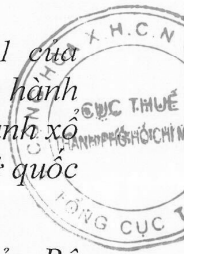 1 của
hành
nh xổ
quốc
X.H.C.N
CỤC THUẾ
THÀNH PHỐ HỒ CHÍ M
TỔNG CỤC T